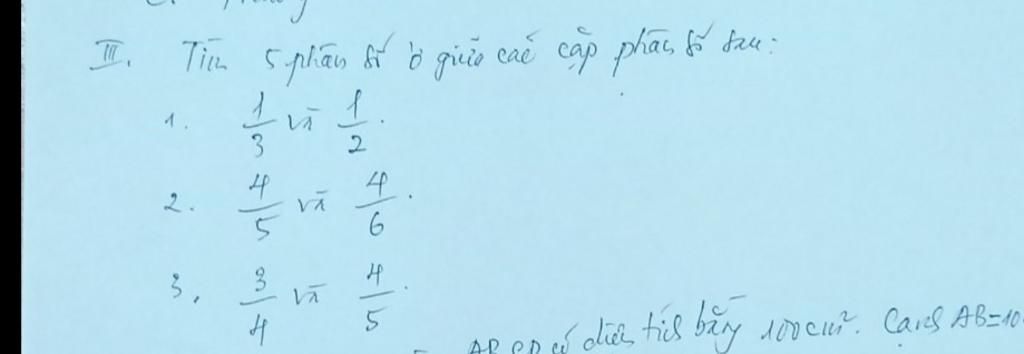 III. Tìm 5 phân số ở giữa các cặp phân số sau:
1. 1/3 và 1/2.
2. 4/5 và 4/6.
3. 3/4 và 4/5.
ABCD có diện tích bằng 100cm². Cạnh AB=10